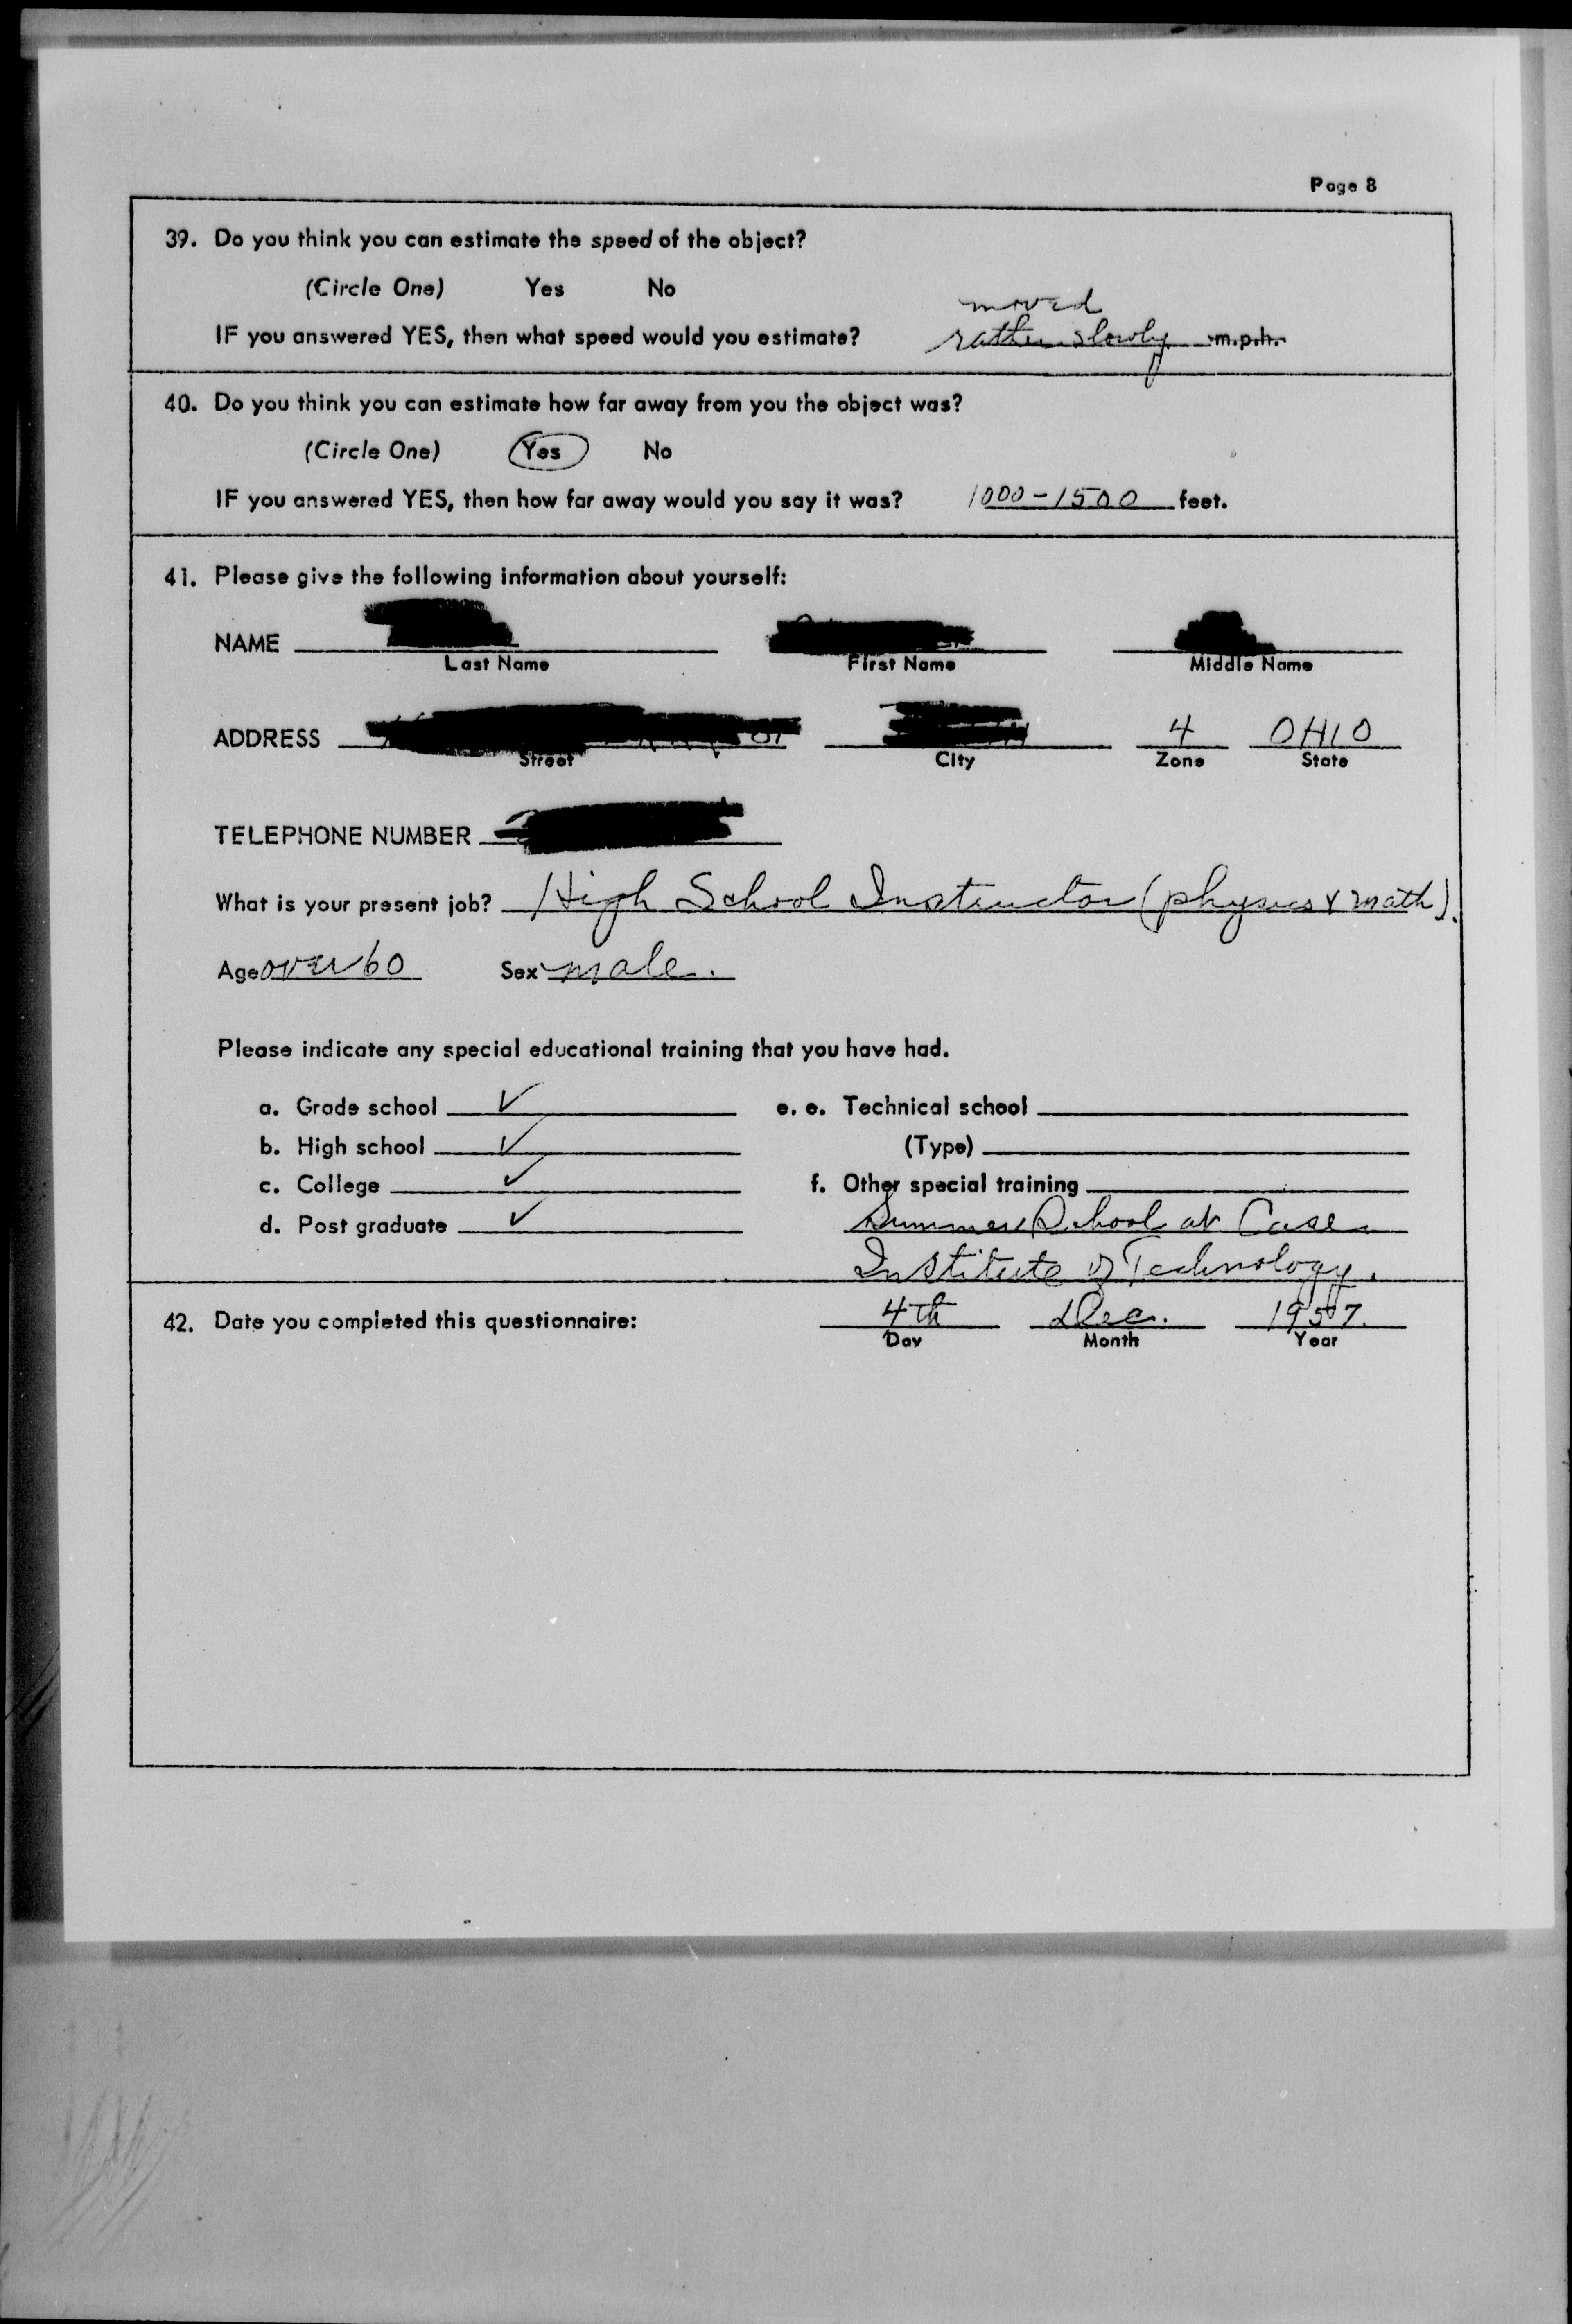 Page 8
39. Do you think you can estimate the speed of the object?
(Circle One) Yes No
moved
IF you answered YES, then what speed would you estimate? rather slowly m.p.h.
40. Do you think you can estimate how far away from you the object was?
(Circle One) Yes No
IF you answered YES, then how far away would you say it was? 1000-1500 feet.
41. Please give the following information about yourself:
NAME
Last Name First Name Middle Name
ADDRESS 4 OHIO
Street City Zone State
TELEPHONE NUMBER
What is your present job? High School Instructor (physics & math).
Age over 60 Sex male.
Please indicate any special educational training that you have had.
a. Grade school ✓ e. e. Technical school
b. High school ✓ (Type)
c. College ✓ f. Other special training
d. Post graduate ✓ Summer School at Case
Institute of Technology.
42. Date you completed this questionnaire: 4th Dec. 1957.
Day Month Year